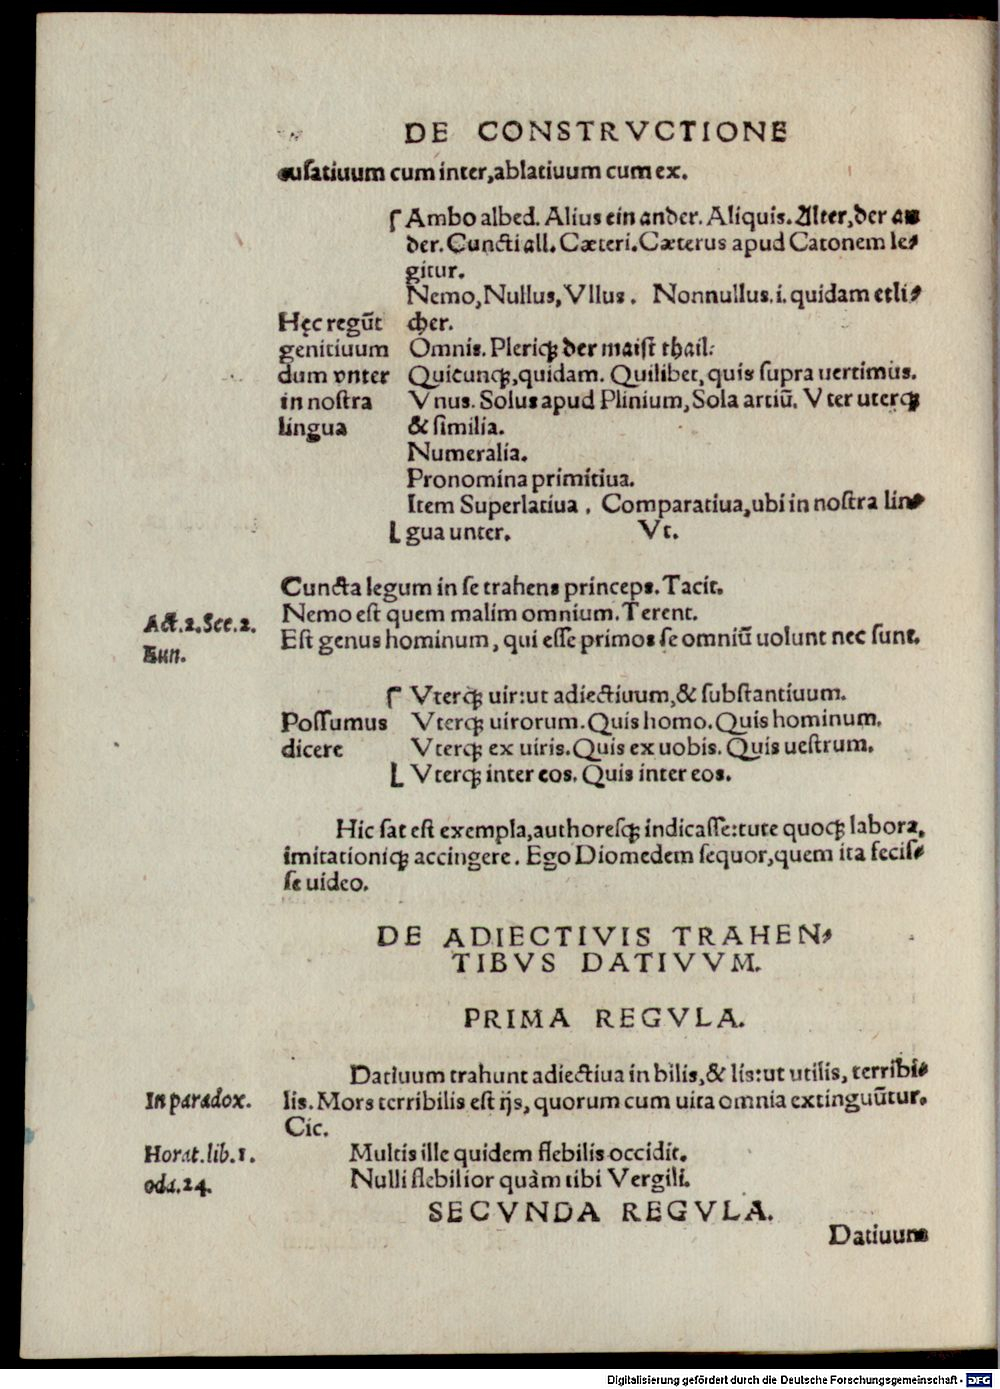 DE CONSTRVCTIONE
cusatiuum cum inter, ablatiuum cum ex.
Ambo albed. Alius ein ander. Aliquis. Alter, der an
der. Cuncti all. Cæteri. Cæterus apud Catonem le-
gitur.
Nemo, Nullus, Vllus. Nonnullus. i. quidam etli-
cher.
Omnis. Pleriqꝫ der maist thail.
Quicunqꝫ, quidam. Quilibet, quis supra uertimus.
Vnus. Solus apud Plinium, Sola artiū. Vter uterqꝫ
& similia.
Numeralia.
Pronomina primitiua.
Item Superlatiua. Comparatiua, ubi in nostra lin-
gua unter. Vt.
Hęc regūt
genitiuum
dum vnter
in nostra
lingua
Cuncta legum in se trahens princeps. Tacit.
Nemo est quem malim omnium. Terent.
Act. 2. Sce. 2.
Eun.
Est genus hominum, qui esse primos se omniū uolunt nec sunt.
Possumus
dicere
Vterqꝫ uir: ut adiectiuum, & substantiuum.
Vterqꝫ uirorum. Quis homo. Quis hominum.
Vterqꝫ ex uiris. Quis ex uobis. Quis uestrum.
Vterqꝫ inter eos. Quis inter eos.
Hic sat est exempla, authoresqꝫ indicasse: tute quoqꝫ labora,
imitationiqꝫ accingere. Ego Diomedem sequor, quem ita fecis-
se uideo.
DE ADIECTIVIS TRAHEN-
TIBVS DATIVVM.
PRIMA REGVLA.
Datiuum trahunt adiectiua in bilis, & lis: ut utilis, terribi-
In paradox.
lis. Mors terribilis est ijs, quorum cum uita omnia extinguūtur.
Cic.
Horat. lib. 1.
oda. 24.
Multis ille quidem flebilis occidit.
Nulli flebilior quàm tibi Vergili.
SECVNDA REGVLA.
Datiuum
Digitalisierung gefördert durch die Deutsche Forschungsgemeinschaft - DFG